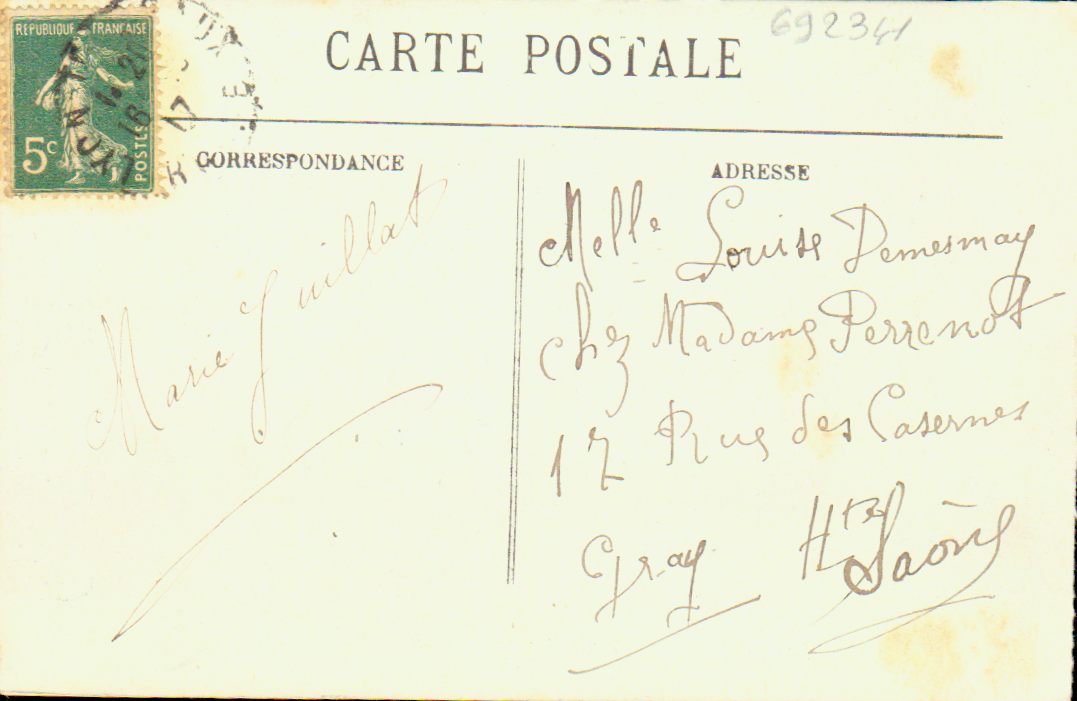 692341
RÉPUBLIQUE FRANÇAISE
5c
POSTES
LYON
16
17
CARTE POSTALE
CORRESPONDANCE
Marie Juillat
ADRESSE
Melle Louise Demesmay
chez Madame Perrenot
17 Rue des Casernes
Gray Hte Saône